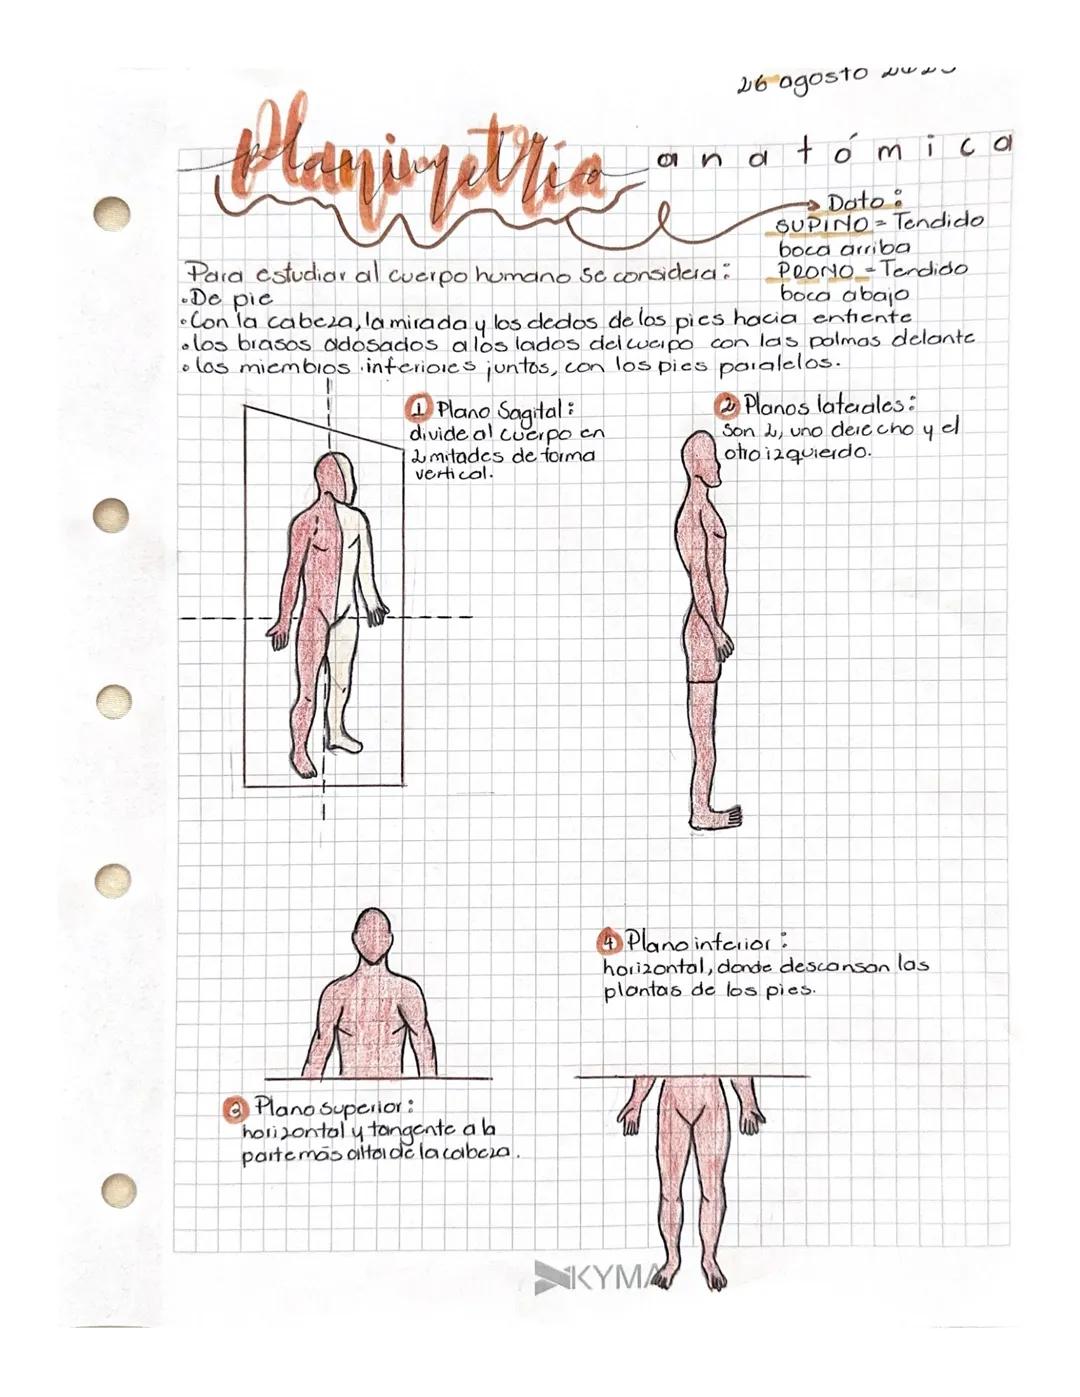 26 agosto
Planimetría anatómica
Dato:
SUPINO = Tendido
boca arriba
PRONO = Tendido
boca abajo
Para estudiar al cuerpo humano se considera:
•De pie
•Con la cabeza, la mirada y los dedos de los pies hacia enfrente
•los brasos adosados a los lados del cuerpo con las palmas delante
•los miembros inferiores juntos, con los pies paralelos.
1 Plano Sagital:
divide al cuerpo en
2 mitades de forma
vertical.
2 Planos laterales:
Son 2, uno derecho y el
otro izquierdo.
4 Plano inferior:
horizontal, donde descansan las
plantas de los pies.
3 Plano superior:
horizontal y tangente a la
parte más alta de la cabeza.
KYMA